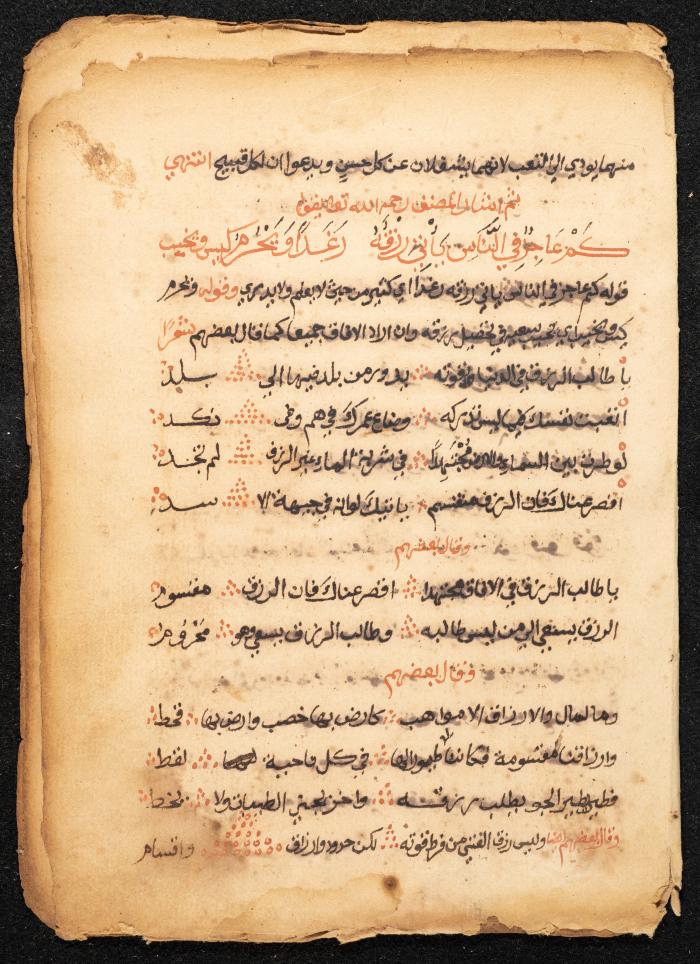 منهما يودي الى التعب لانهما يشغلان عن كل حسن ويدعوان لكل قبيح انتهى
ثم اشار المصنف رحمه الله تعالى بقوله
كم عاجز في الناس ياتي رزقه رغدا ويحرم كيس ويخيب
قوله كم عاجز في الناس ياتي رزقه رغدا اي كثير من حيث لا يعلم ولا يدري وقوله ويحرم
كيس ويخيب اي يخيب سعيه في تحصيل رزقه وان الاد الافاق جميعا كما قال بعضهم شعرا
يا طالب الرزق في الدنيا وقوته يدور من بلد فيها الى بلد
اتعبت نفسك فيما ليس تدركه وضاع عمرك في هم وفي نكد
لو طرت بين السماء والارض مجتهدا في شربة الماء غير الرزق لم تجد
اقصر عناك فان الرزق منقسم ياتيك لو انه في جبهة الاسد
وقال بعضهم
يا طالب الرزق في الافاق مجتهدا اقصر عناك فان الرزق مقسوم
الرزق يسعى الى من ليس طالبه وطالب الرزق يسعى وهو محروم
وقال بعضهم
وما المال والارزاق الا مواهب كارض بها خصب وارض بها قحط
وارزاقنا مقسومة فكاننا طيور لها في كل ناحية لقط
فطير يطير الجو يطلب رزقه واخر يعطى الطيران ولا يخط
وقال بعضهم ايضا وليس رزق الفتى من فرط قوته لكن حدود وارزاق واقسام